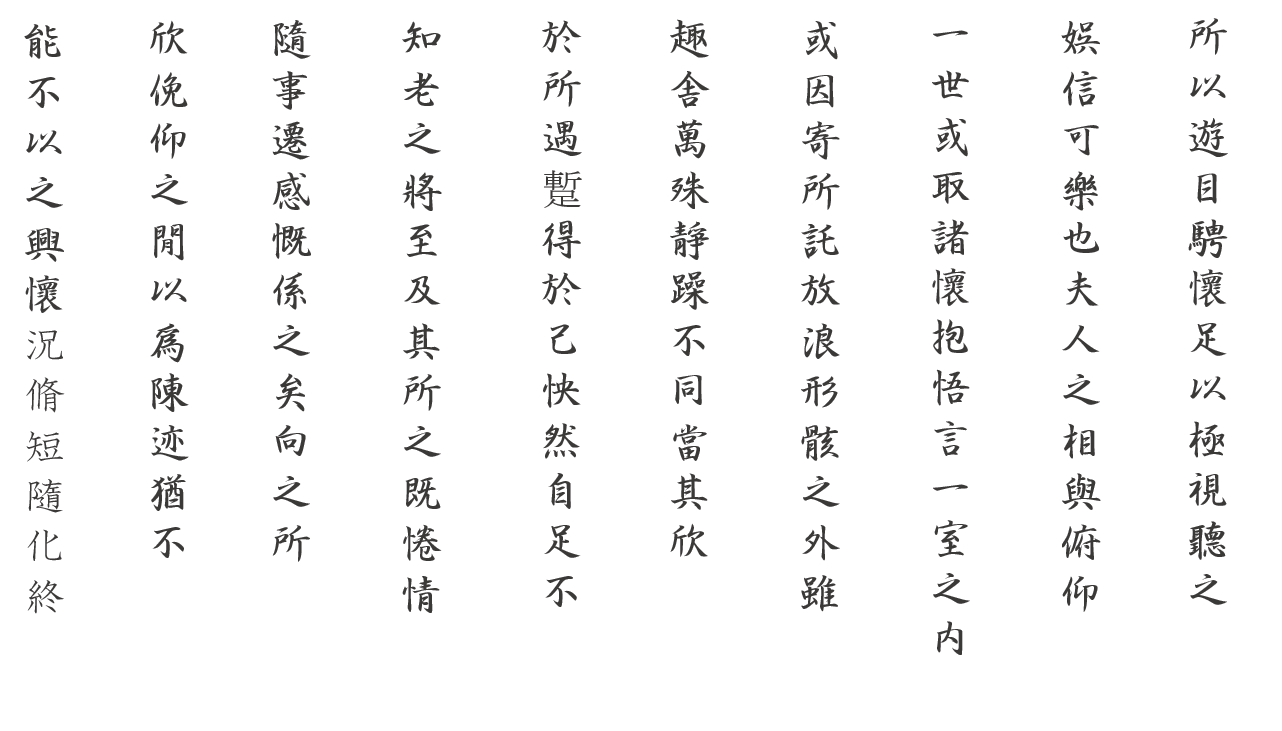 所以遊目騁懷足以極視聽之
娛信可樂也夫人之相與俯仰
一世或取諸懷抱悟言一室之内
或因寄所託放浪形骸之外雖
趣舍萬殊靜躁不同當其欣
於所遇蹔得於己怏然自足不
知老之將至及其所之既惓情
隨事遷感慨係之矣向之所
欣俛仰之閒以爲陳迹猶不
能不以之興懷況脩短隨化終